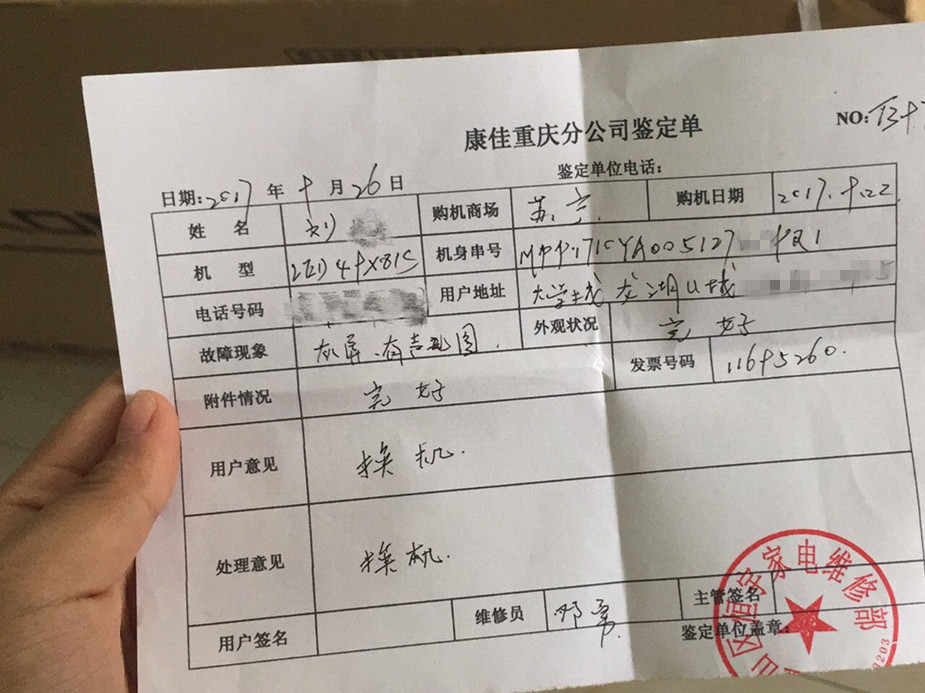 康佳重庆分公司鉴定单
NO:
鉴定单位电话:
日期:2017年十月26日
姓 名 刘 购机商场 苏宁 购机日期 2017.十.22
机 型 机身串号
电话号码 用户地址 大学城龙湖U城
故障现象 灰屏、有声无图. 外观状况 完好
附件情况 完好 发票号码 11695260.
用户意见 换机.
处理意见 换机.
用户签名 维修员 邓勇 主管签名
鉴定单位盖章:
家电维修部